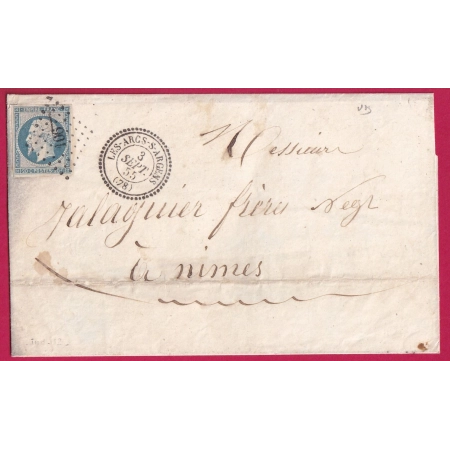 LES-ARCS-S-ARGENS
3
SEPT.
55
(78)
Messieurs
Valaguier frères Negt
à nimes